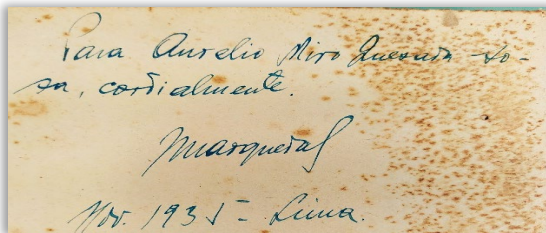 Para Aurelio Miro Quesada So-
sa, cordialmente.
Nov. 1935 - Lima.